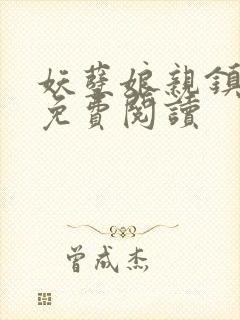 妖孽娘親鎮
免費閱讀
曾成杰